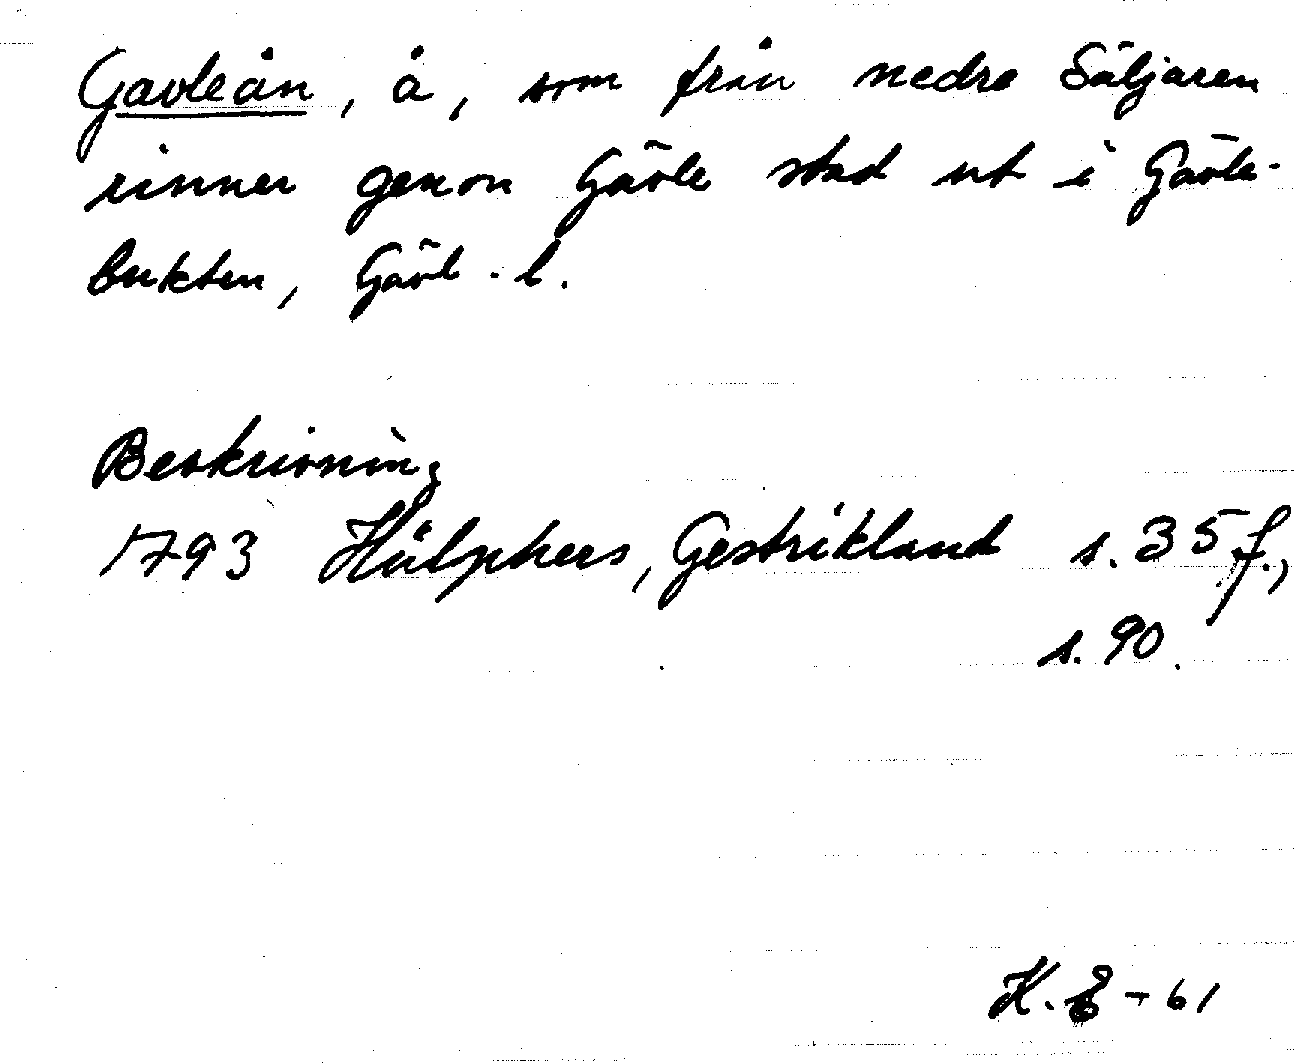 Gavleån, å, som från nedre Säljaren
rinner genon Gävle stad ut i Gävle-
bukten, Gävl. l.
Beskrivning
1793 Hülphers, Gestrikland s. 35 f.,
s. 90.
K. E - 61